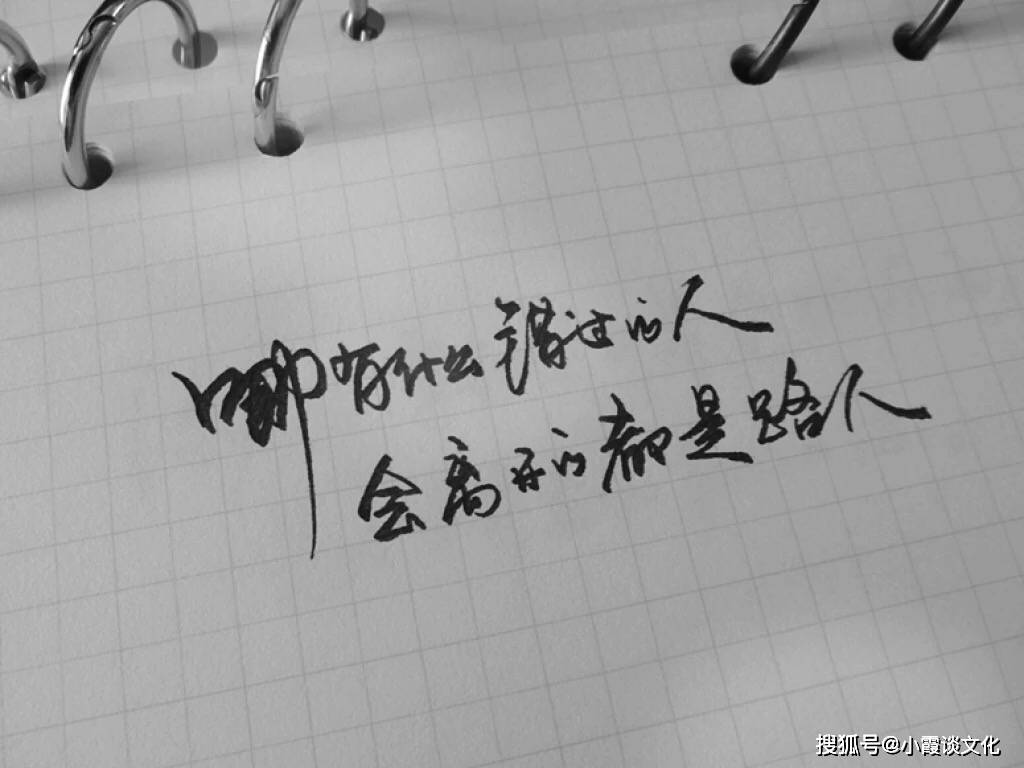 哪有什么错过的人
会离开的都是路人
搜狐号@小霞谈文化